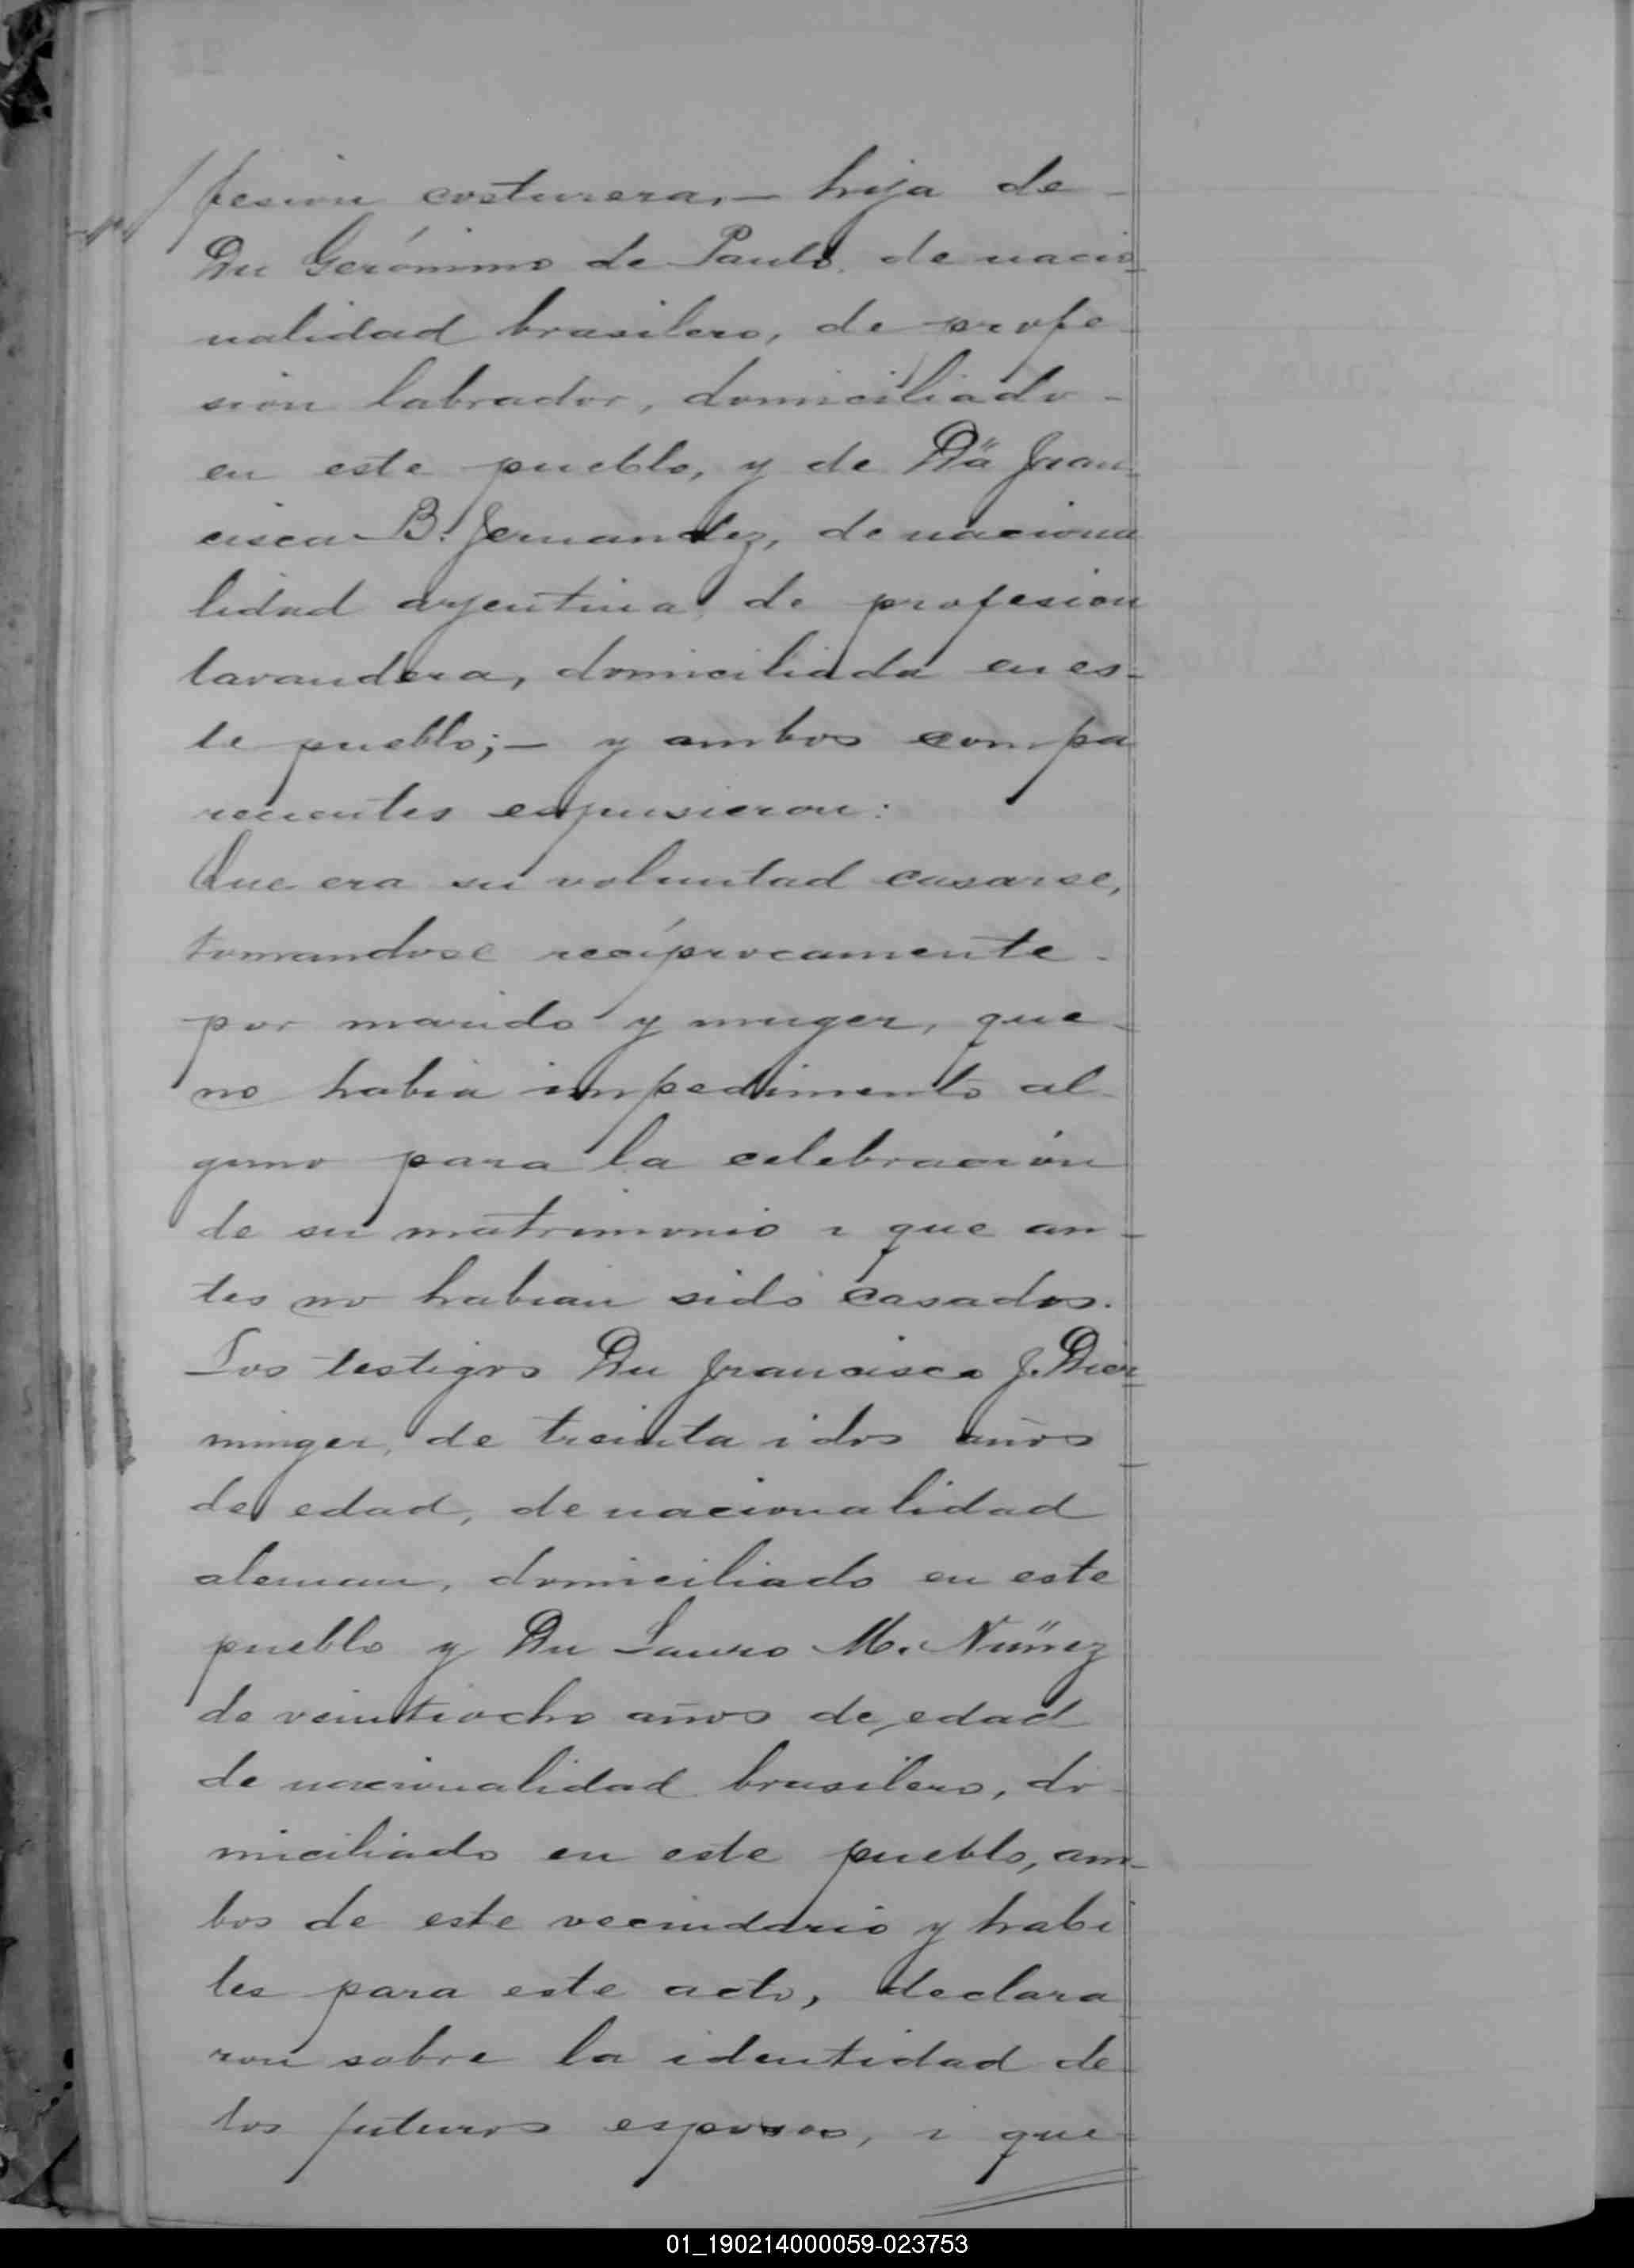 fesion costurera,— hija de —
Dn Gerónimo de Paulo, de nacio
nalidad brasilero, de profe
sion labrador, domiciliado —
en este pueblo, y de Dña Fran
cisca B. Fernandez, de naciona
lidad argentina, de profesion
lavandera, domiciliada en es-
te pueblo;— y ambos compa
recientes expusieron:
Que era su voluntad casarse,
tomandose recíprocamente —
por marido y muger, que
no habia impedimento al
guno para la celebración
de su matrimonio i que an-
tes no habian sido casados.
Los testigos Dn Francisco J. Dier
minger, de treinta i dos años
de edad, de nacionalidad
aleman, domiciliado en este
pueblo y Dn Lauro M. Núñez
de veintiocho años de edad
de nacionalidad brasilero, do
miciliado en este pueblo, am-
bos de este vecindario y habi
les para este acto, declara
ron sobre la identidad de
los futuros esposos, i que
01_190214000059-023753